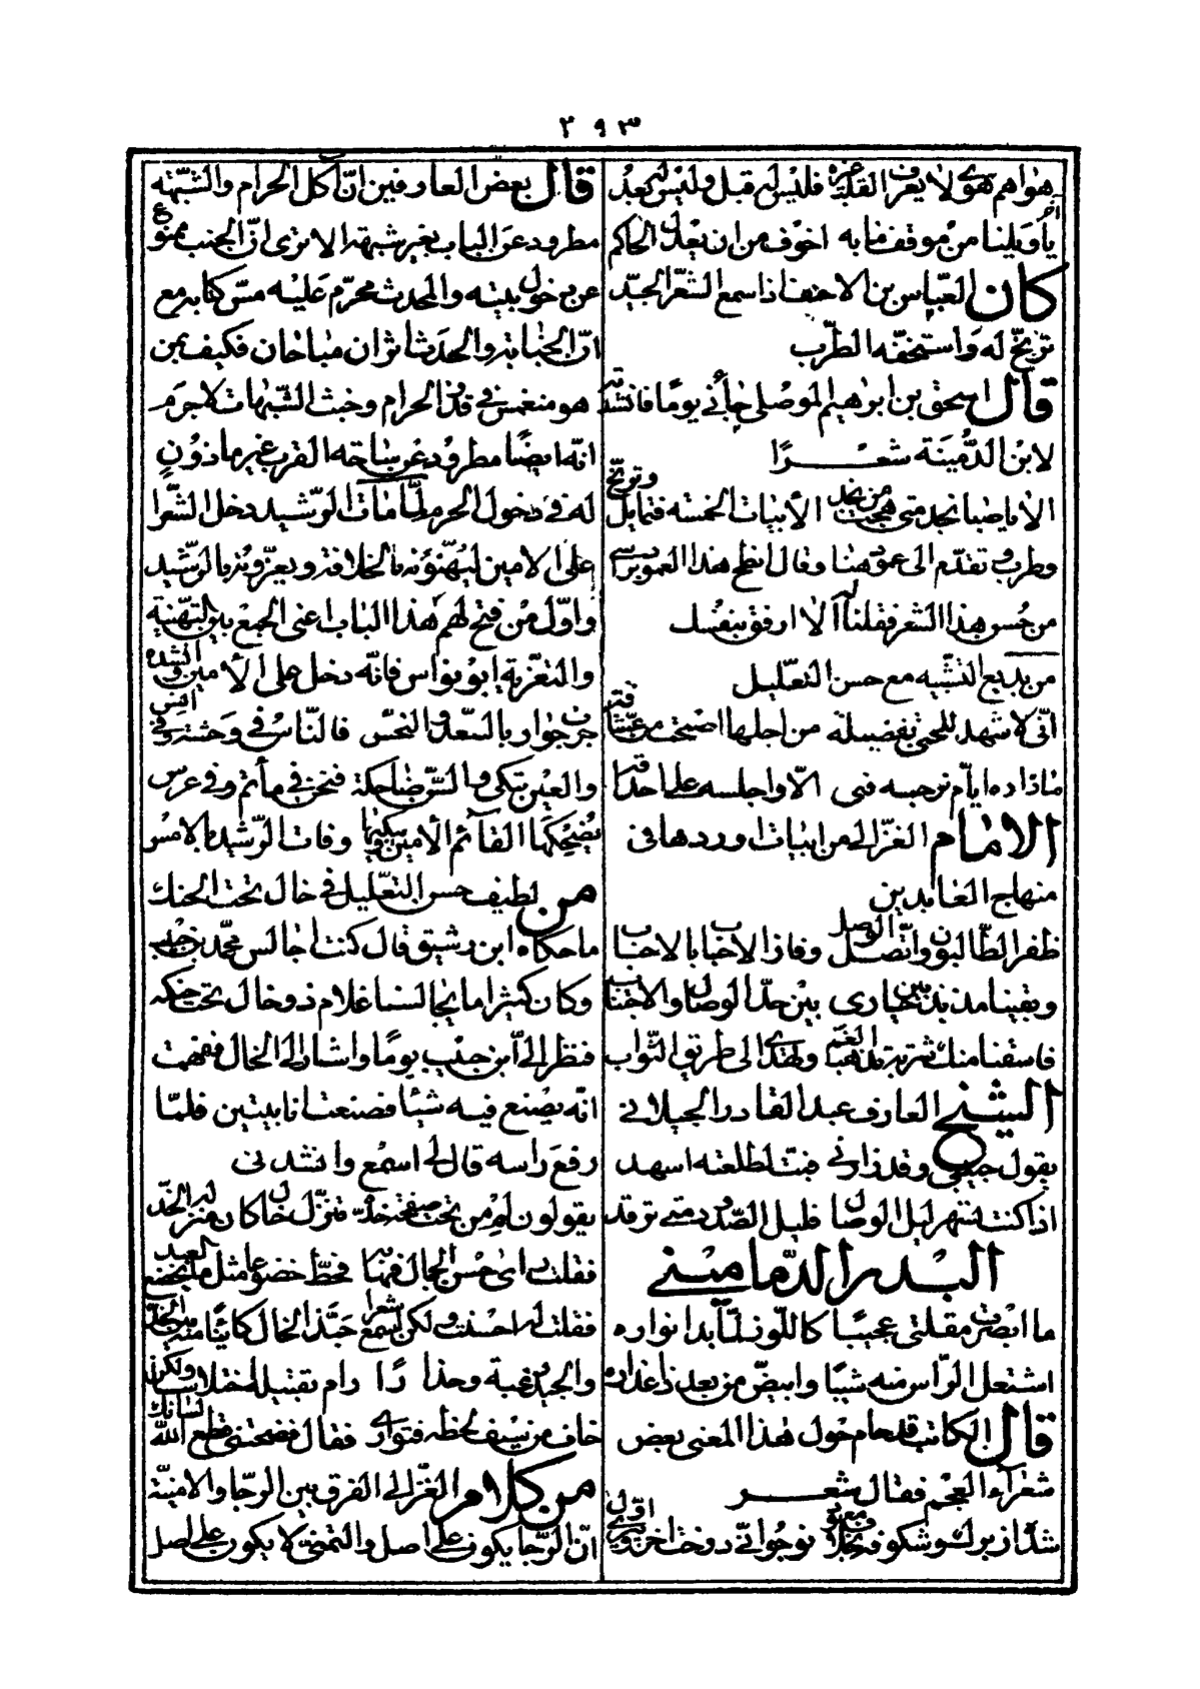 ٢٩٣
هواهم هوى لا يعرف القلب غيره فليس له قبل وليس له بعد
يا ويلنا من موقف ما به اخوف من ان يعدل الحاكم
كان العباس بن الاحنف اذا سمع الشعر الجيد
ترنح له واستخفه الطرب
قال اسحق بن ابرهيم الموصلي جاءني يوما فانشدته
لابن الدمينة شعرا
الا يا صبا نجد متى هجت من نجد الأبيات الخمسه فتمايل وترنح
وطرب وتقدم الى عمود هنا وقال انطح هذا العمود برأسي
من حسن هذا الشعر فقلنا له الا ارفق بنفسك
من بديع التشبيه مع حسن التعليل
انى لاشهد للحمى بفضيلة من اجلها اصبحت من عشاقه
ما زاره ايام نرجسه فتى الا واجلسه على احداقه
الامام الغزالي من ابيات اوردها في
منهاج العابدين
ظفر الطالبون واتصل الوصل وفاز الاحباب بالاحباب
وبقينا مذبذبين حيارى بين حد الوصال والاجتناب
فاسقنا منك شربة تذهب الغم وتهدى الى طريق الثواب
الشيخ العارف عبد القادر الجيلاني
يقول حبيبى وقد زارني فبت لطلعته اسهد
اذا كنت تسهر ليل الوصال فليل الصدود متى ترقد
البدر الدمامينى
ما ابصرت مقلتى عجيبا كاللوز لما بدا نواره
اشتعل الراس منه شيبا وابيض من بعد ذا عذاره
قال الكاتب قد حام حول هذا المعنى بعض
شعراء العجم فقال شعر
شد از برك وشكوفه نوجوانى درخت
قال بعض العارفين ان آكل الحرام والشبهة
مطرود عن الباب بغير شبهة الا ترى ان الجنب ممنوع
عن دخول بيته والمحدث محرم عليه مس كتابه مع
ان الجنابة والحدث اثران مباحان فكيف بمن
هو منغمس في قذر الحرام وخبث الشبهات لا جرم
انه ايضا مطرود عن ساحة القرب غير ماذون
له في دخول الحرم لما مات الرشيد دخل الشعرا
على الامين ليهنؤنه بالخلافة ويعزونه بالرشيد
واول من فتح لهم هذا الباب اعنى الجمع بين التهنية
والتعزية ابو نواس فانه دخل على الأمين وانشده
جرت جوار بالسعد والنحس فالناس في وحشة وفي انس
والعين تبكى والسن ضاحكة فنحن في مأتم وفي عرس
يضحكها القائم الأمين ويبكيها وفات الرشيد بالامس
من لطيف حسن التعليل في خال تحت الحنك
ما حكاه ابن رشيق قال كنت اجالس محمد بن حبيب
وكان كثيرا ما يجالسنا غلام ذو خال تحت حنكه
فنظر الى ابن حبيب يوما واشار الى الخال ففهمت
انه يصنع فيه شيئا فصنعت انا بيتين فلما
رفع راسه قال لى اسمع وانشدنى
يقولون لم من تحت صفحة خده تنزل خال كان منزله الخد
فقلت راى حسن الجمال فهابه فحط خضوعا مثل ما يخضع العبد
فقلت له احسنت ولكن اسمع شعرا حبذا الخال كائنا منه بين الخد
والجيد رغبة وحذارا رام تقبيله اختلاسا ولكن
خاف من سيف لحظه فتوارى فقال فضحتنى قطع الله لسانك
من كلام الغزالى الفرق بين الرجا والامنية
ان الرجا يكون على اصل والتمنى لا يكون على اصل